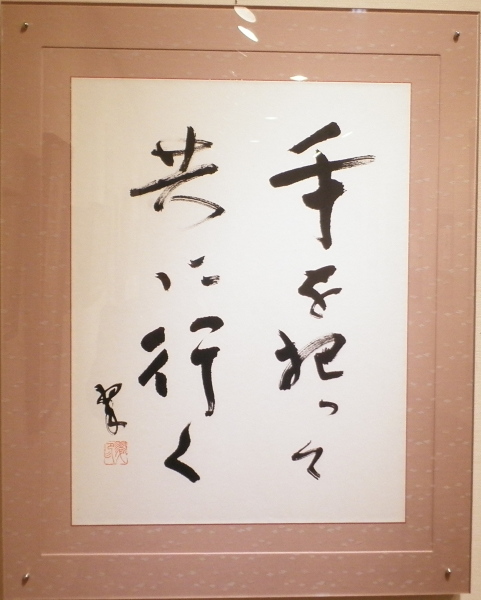 手を把って
共に行く
翠